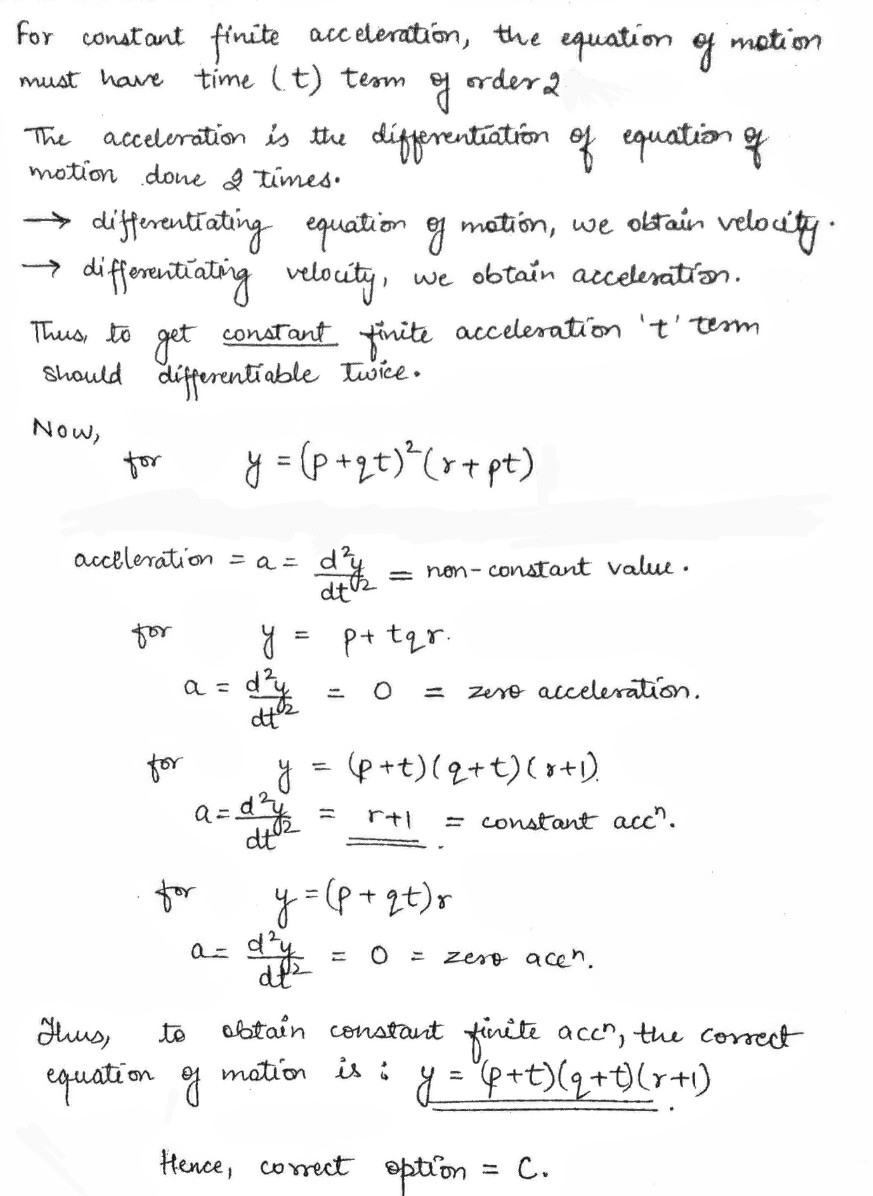 For constant finite acceleration, the equation of motion
must have time (t) term of order 2
The acceleration is the differentiation of equation of
motion done 2 times.
→ differentiating equation of motion, we obtain velocity.
→ differentiating velocity, we obtain acceleration.
Thus, to get constant finite acceleration 't' term
should differentiable twice.
Now,
for y = (p+qt)²(r+pt)
acceleration = a = d²y/dt² = non-constant value.
for y = p+tqr.
a = d²y/dt² = 0 = zero acceleration.
for y = (p+t)(q+t)(r+1).
a = d²y/dt² = r+1 = constant accⁿ.
for y = (p+qt)r
a = d²y/dt² = 0 = zero accⁿ.
Thus, to obtain constant finite accⁿ, the correct
equation of motion is : y = (p+t)(q+t)(r+1).
Hence, correct option = C.